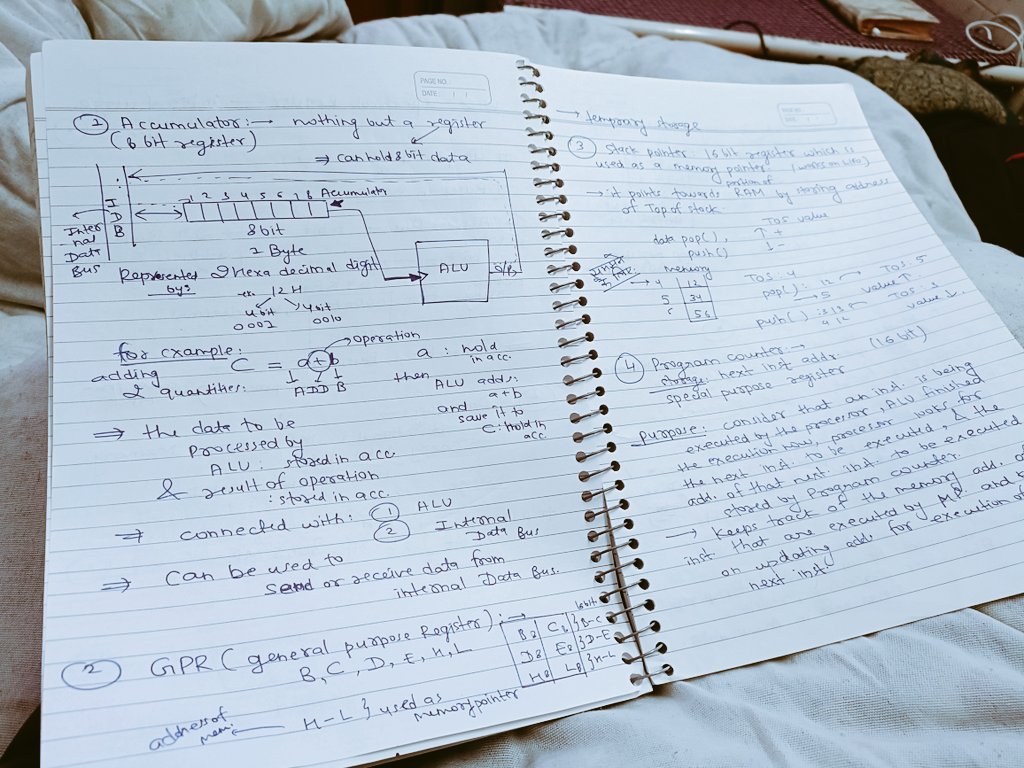 PAGE NO.:
DATE: / /
① Accumulator:→ nothing but a register
(8 bit register)
⇒ can hold 8 bit data
1 2 3 4 5 6 7 8 Accumulator
IDB
Internal Data Bus
8 bit
1 Byte
ALU
O/P
Represented 2 Hexa decimal digit
by:
ex 12H
4bit 4bit
0001 0010
for example:
adding
2 quantities:
C = a + b
operation
ADD B
a : hold
in acc.
then
ALU adds:
a+b
and save it to
C: hold in
acc.
⇒ the data to be
processed by
ALU: stored in acc
& result of operation
: stored in acc.
⇒ connected with: ① ALU
② Internal
Data Bus
⇒ can be used to
send or receive data from
internal Data Bus.
② GPR (general purpose Register):→
B, C, D, E, H, L
16bit
B8 C8 } B-C
D8 E8 } D-E
H8 L8 } H-L
H-L } used as
memory pointer
address of
mem.
PAGE NO.:
DATE: / /
→ temporary storage
③ Stack pointer 16 bit register which is
used as a memory pointer. (works on LIFO)
→ it points towards portion of RAM by storing address
of Top of stack.
data pop(),
push()
TOS value
↑ +
↓ -
memory
4 12
5 34
56
TOS: 4
pop(): 12 → TOS: 5
→ 5 value ↑.
push() : ← TOS: 3
value ↓.
④ Program counter:→ (16 bit)
storage: next inst addr
special purpose register
purpose: consider that an inst. is being
executed by the processor, ALU finished
the execution now, processor looks for
the next inst. to be executed, & the
add. of that next. inst. to be executed
stored by Program counter.
→ keeps track of the memory add. of
inst that are executed by MP. and
on updating add. for execution of
next inst